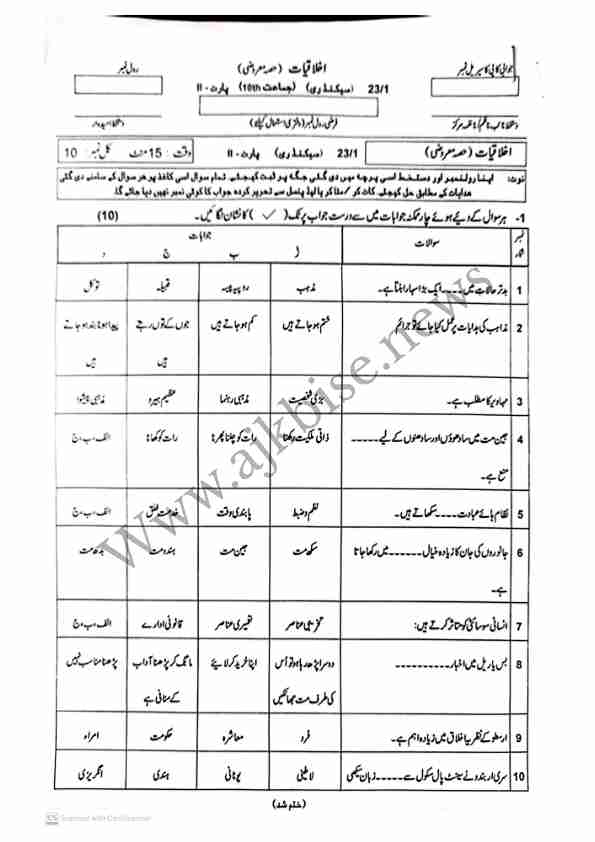 جوابی کاپی کا سیریل نمبر
اخلاقیات (حصہ معروضی)
رول نمبر
23/1 (سیکنڈری) (جماعت 10th) پارٹ - II
دستخط نائب ناظم/ناظمہ مرکز
فرضی رول نمبر (دفتری استعمال کیلئے)
دستخط امیدوار
اخلاقیات (حصہ معروضی) 23/1 (سیکنڈری) پارٹ - II
وقت : 15 منٹ کل نمبر : 10
نوٹ: اپنا رولنمبر اور دستخط اسی پرچہ میں دی گئی جگہ پر ثبت کیجئے۔ تمام سوال اسی کاغذ پر ہر سوال کے سامنے دی گئی
ہدایات کے مطابق حل کیجئے۔ کاٹ کر/مٹا کر یا لیڈ پنسل سے تحریر کردہ جواب کا کوئی نمبر نہیں دیا جائے گا۔
1- ہر سوال کے دیے ہوئے چار ممکنہ جوابات میں سے درست جواب پر ٹک (✓) کا نشان لگائیں۔ (10)
نمبر شمار سوالات جوابات
ا ب ج د
1 بدتر حالات میں ۔۔۔۔ ایک بڑا سہارا بنتا ہے۔ مذہب روپیہ پیسہ قبیلہ توکل
2 مذاہب کی ہدایات پر عمل کیا جائے تو جرائم ختم ہو جاتے ہیں کم ہو جاتے ہیں جوں کے توں رہتے ہیں پیدا ہونا بند ہو جاتے ہیں
3 مہاویر کا مطلب ہے۔ بڑی شخصیت مذہبی رہنما عظیم ہیرو مذہبی پیشوا
4 جین مت میں سادھوؤں اور سادھنوں کے لیے ۔۔۔۔۔ منع ہے۔ ذاتی ملکیت رکھنا رات کو چلنا پھرنا رات کو کھانا الف، ب، ج
5 نظام ہائے عبادت ۔۔۔۔ سکھاتے ہیں۔ نظم و ضبط پابندی وقت خدمت خلق الف، ب، ج
6 جانوروں کی جان کا زیادہ خیال ۔۔۔۔۔۔ میں رکھا جاتا ہے۔ سکھ مت جین مت ہندو مت بدھ مت
7 انسانی سوسائٹی کو متاثر کرتے ہیں: تخریبی عناصر تعمیری عناصر قانونی ادارے الف، ب، ج
8 بس یا ریل میں اخبار ۔۔۔۔۔۔۔۔۔ دوسرا پڑھ رہا ہو تو اُس کی طرف مت جھانکیں اپنا خرید کر لائیے مانگ کر پڑھنا آداب کے منافی ہے پڑھنا مناسب نہیں
9 ارسطو کے نظریہ اخلاق میں زیادہ اہم ہے۔ فرد معاشرہ حکومت امراء
10 سری اربندو نے سینٹ پال سکول سے ۔۔۔۔۔ زبان سیکھی لاطینی یونانی ہندی انگریزی
(ختم شد)
www.ajkbise.news
CS Scanned with CamScanner